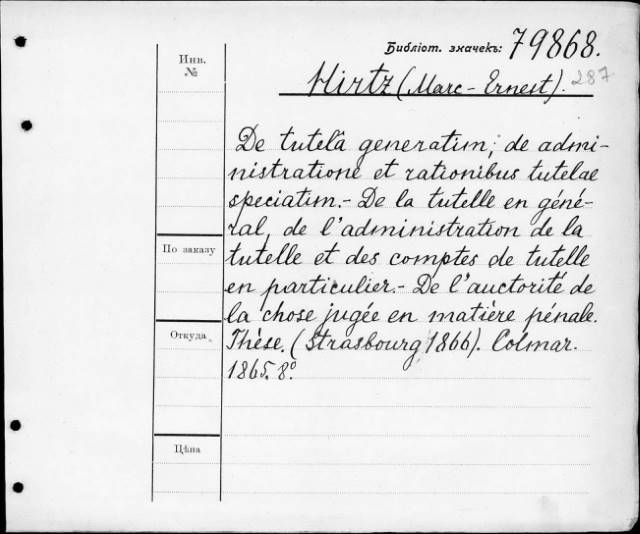 Библіот. значекъ: 79868.
Инв.
№
Hirtz (Marc-Ernest). 287
De tutelâ generatim; de admi-
nistratione et rationibus tutelae
speciatim.- De la tutelle en géné-
ral, de l'administration de la
По заказу
tutelle et des comptes de tutelle
en particulier.- De l'auctorité de
la chose jugée en matière pénale.
Откуда
Thèse. (Strasbourg 1866). Colmar.
1865. 8º.
Цѣна